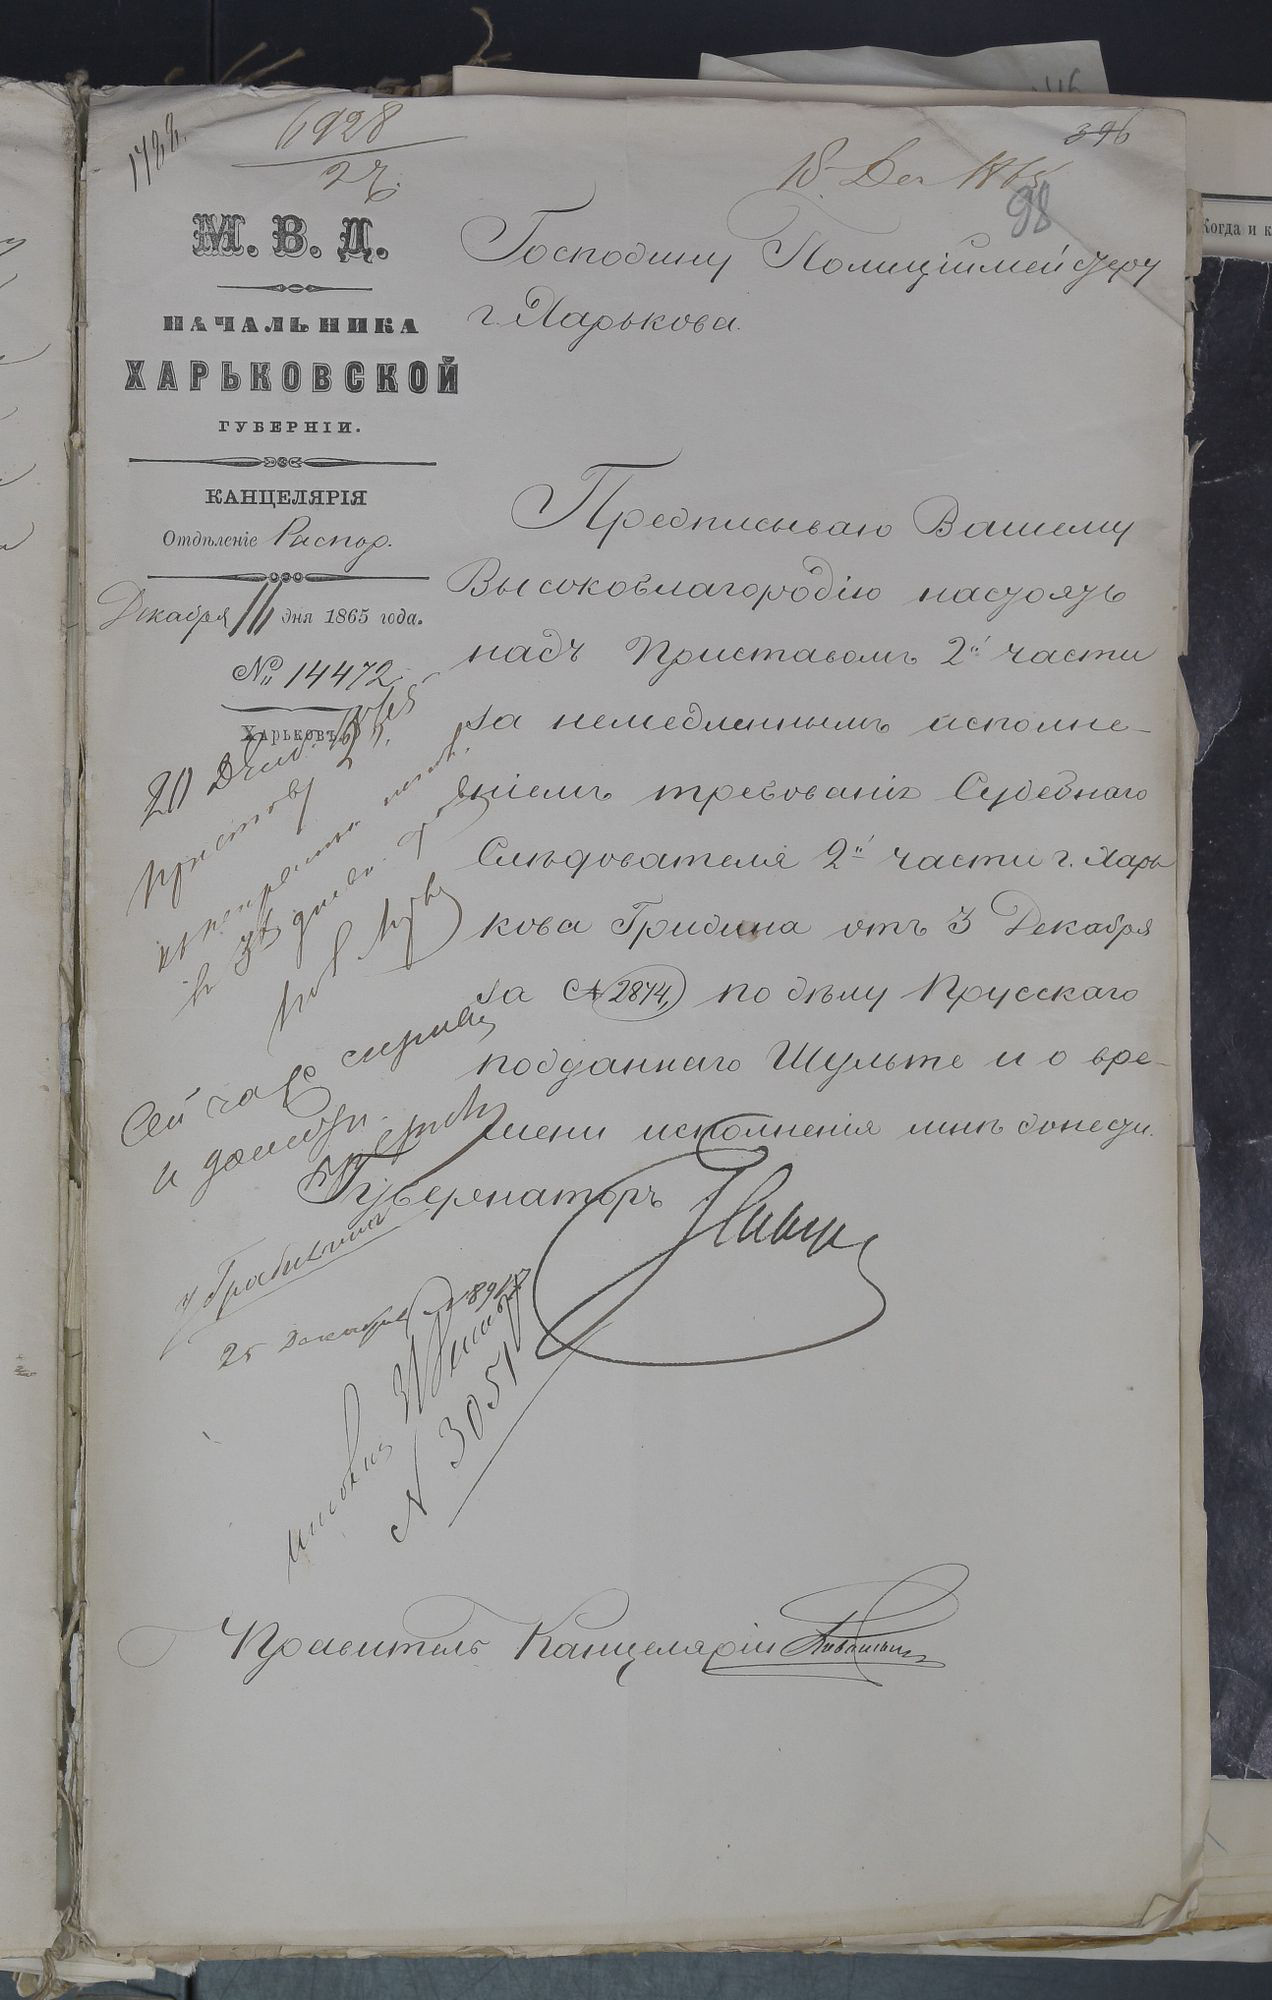 1788.
6928
27.
396
18 Дек 1865
98
М. В. Д.
НАЧАЛЬНИКА
ХАРЬКОВСКОЙ
ГУБЕРНІИ.
КАНЦЕЛЯРІЯ
Отдѣленіе Распор.
Декабря 11 дня 1865 года.
№ 14472
Харьковъ
Господину Полиціймейстеру
г. Харькова.
Предписываю Вашему
Высокоблагородію настоять
надъ Приставомъ 2й части
за немедленнымъ исполне-
ніемъ требованія Судебнаго
Слѣдователя 2й части г. Харь
кова Гридина отъ 3 Декабря
за № 2874, по дѣлу Прусскаго
подданнаго Шульте и о вре-
мени исполненія мнѣ донести.
Губернаторъ
20 Декаб.
Приставу 2
въ дня
Сей часъ
и
25 Декабря
№ 3051
Правитель Канцеляріи
Когда и к